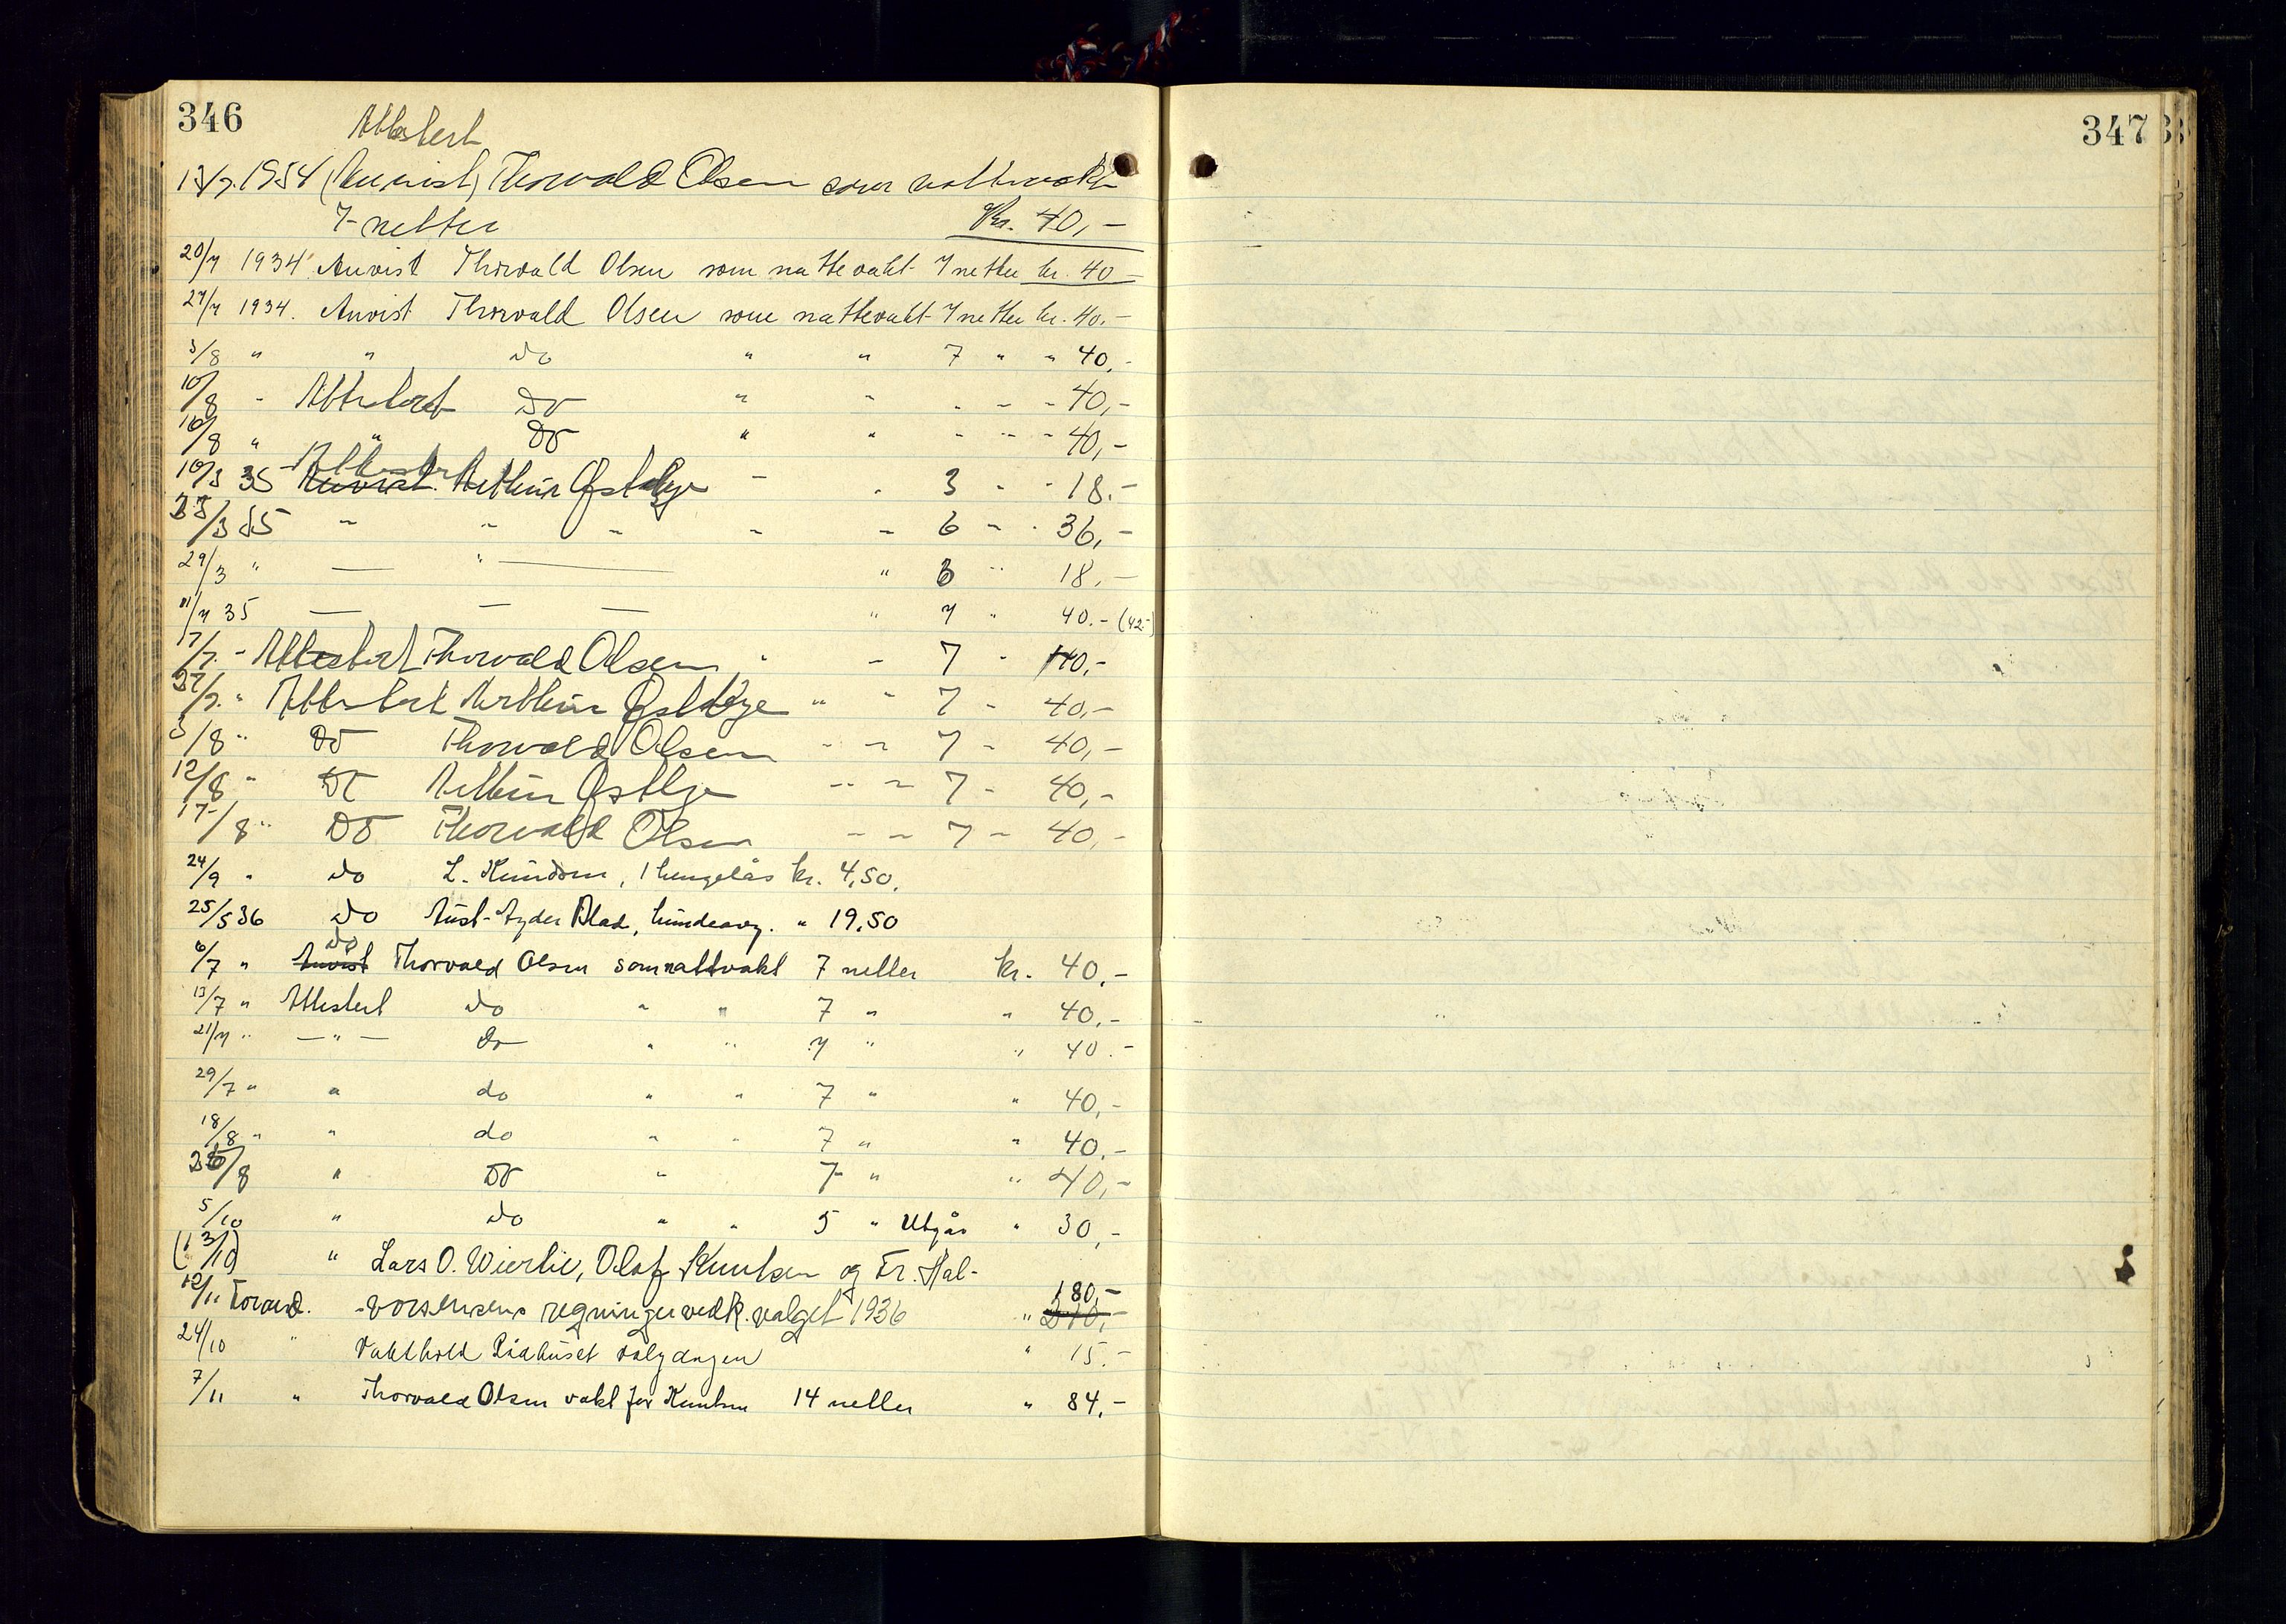 346
Attestert
13/7. 1934 (Anvist) Thorvald Olsen som nattevakt
7 netter Kr. 40,-
20/7 1934 Anvist Thorvald Olsen som nattevakt 7 netter kr. 40 -
27/7 1934. Anvist Thorvald Olsen som nattevakt 7 netter kr. 40.-
3/8 " " do " " 7 " " 40,-
10/8 - Attestert Do " " - - - 40,-
16/8 " " Do " " - - - 40,-
Attestert
16/3 35 Anvist. Arthur Østebye - - 3 - - 18.-
23/3 35 " " " " - 6 - - 36,-
29/3 " — " — " 3 " 18.-
11/7 35 — — — " 7 " 40.- (42-)
17/7. - Attestert Thorvald Olsen " - 7 - 40,-
27/7. " Attestert Arthur Østebye " - 7 - 40,-
3/8 " Do Thorvald Olsen - - 7 - 40,-
12/8 " Do Arthur Østbye - - 7 - 40,-
17/8 " Do Thorvald Olsen - - 7 - 40,-
24/9 " do L. Knudsen, 1 hengelås kr. 4,50.
25/5 36 do Aust-Agder Blad, hundeavg. " 19,50
do
6/7 " Anvist Thorvald Olsen som nattvakt 7 netter kr. 40,-
13/7 " Attestert do " " 7 " " 40,-
21/7 " — " — do " " 7 " " 40.-
29/7 " " do " " 7 " " 40,-
18/8 " " do " " 7 " " 40,-
26/8 " Do " 7 " " 40,-
5/10 " do " " 5 " Utgår " 30,-
(13/10) " Lars O. Wierlie, Olaf Knutsen og Fr. Hal-
180,-
12/11 -vorsensens regninger vedk. valget 1936 " 210,-
24/10 " Vakthold Rådhuset valgdagen " 15.-
7/11 " Thorvald Olsen vakt for Knutsen 14 netter " 84,-
347